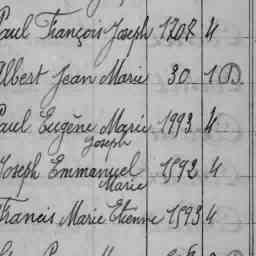 Paul François Joseph 1207 4
Albert Jean Marie 30 1 D
Paul Eugène Marie 1993 4
Joseph
Joseph Emmanuel 1592 4
Marie
Francis Marie Etienne 1593 4